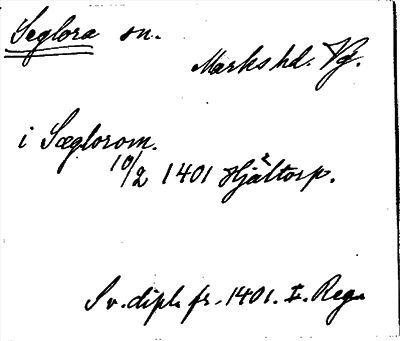 Seglora sn.
Marks hd. Vg.
i Sæglorom.
10/2 1401 Hjältorp.
Sv. dipl. fr. 1401. I. Reg.